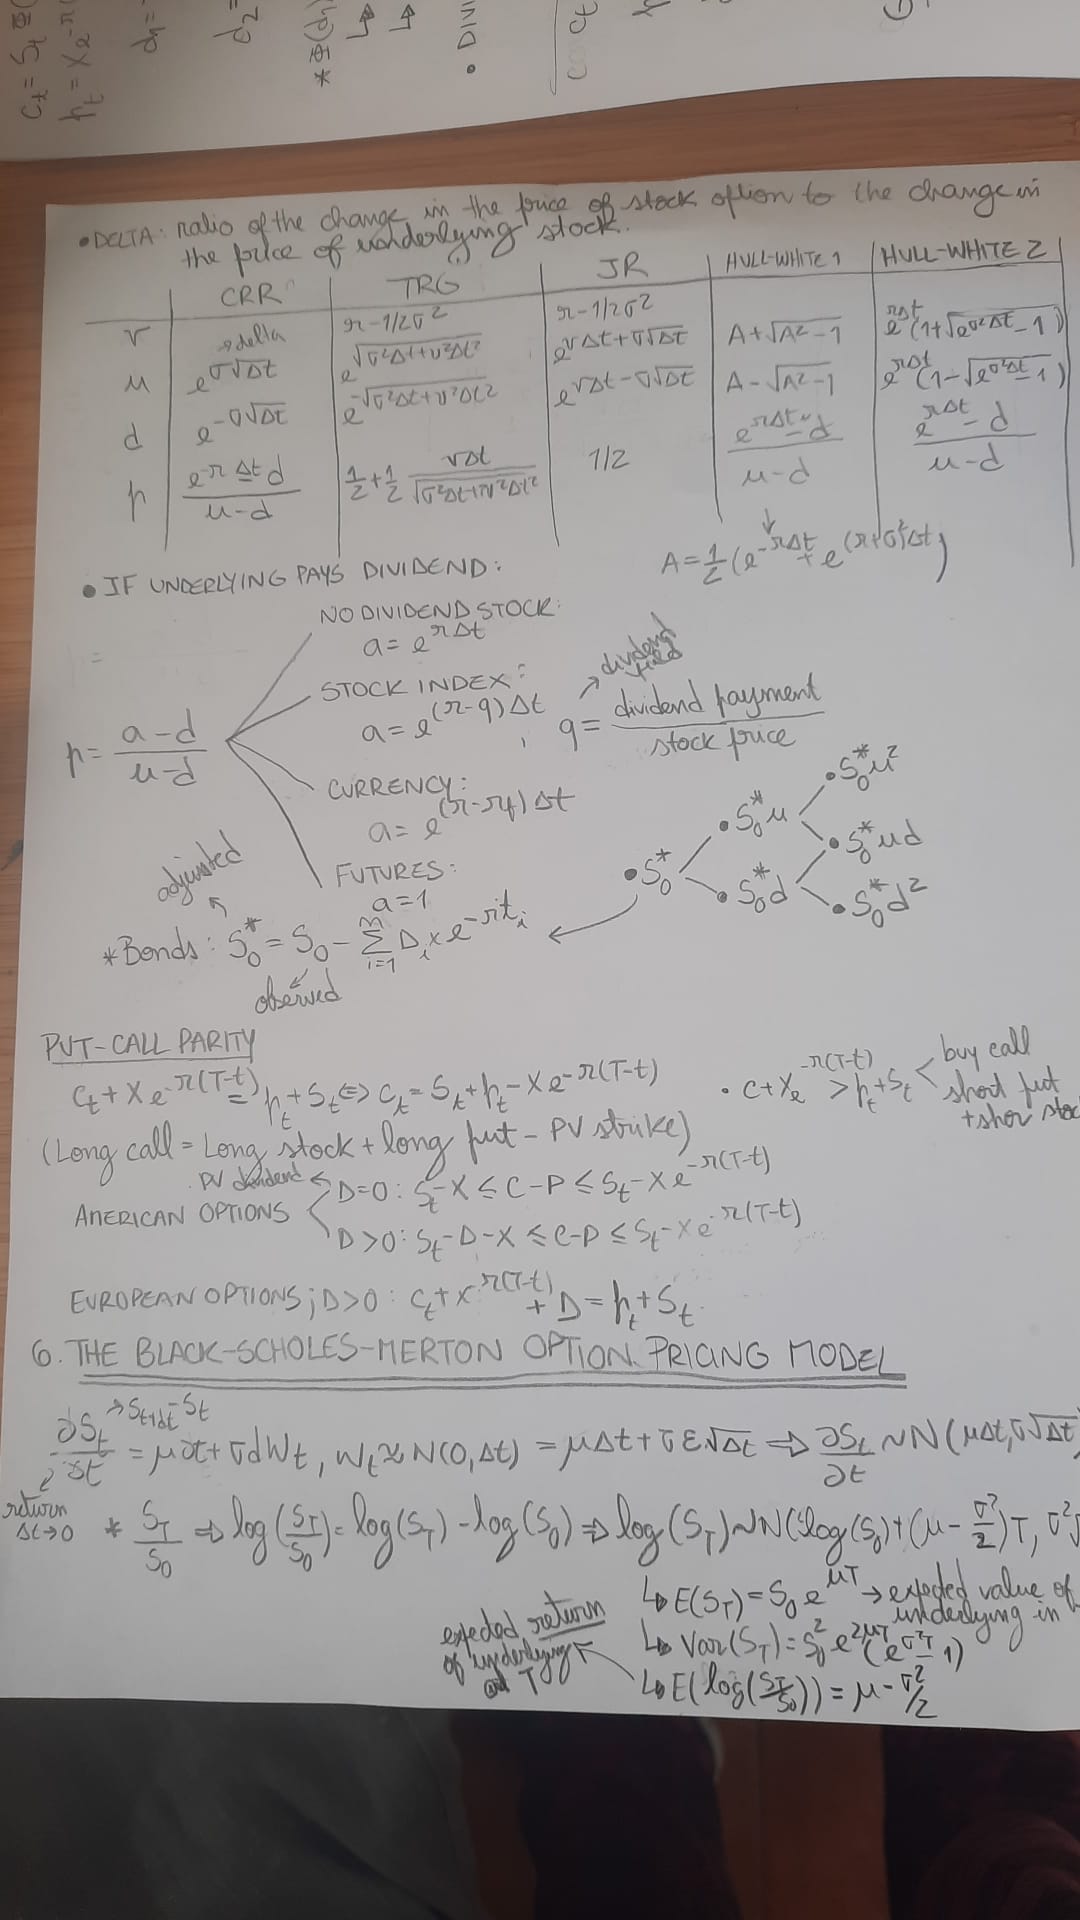 Ct = St Φ(
Pt = Xe^-r(
d1 =
d2 =
* Φ(d1)
↳
↳
• DIVI
Ct
• DELTA: ratio of the change in the price of stock option to the change in
the price of underlying stock.
CRR TRG JR HULL-WHITE 1 HULL-WHITE 2
v r-1/2σ² r-1/2σ²
→ delta
u e^σ√Δt e^√σ²Δt+v²Δt² e^vΔt+σ√Δt A+√A²-1 e^rΔt(1+√e^σ²Δt-1)
d e^-σ√Δt e^-√σ²Δt+v²Δt² e^vΔt-σ√Δt A-√A²-1 e^rΔt(1-√e^σ²Δt-1)
p e^-rΔt-d / u-d 1/2+1/2 vΔt / √σ²Δt+v²Δt² 1/2 e^rΔt-d / u-d e^rΔt-d / u-d
↓
A=1/2(e^-rΔt+e^(r+σ²)Δt)
• IF UNDERLYING PAYS DIVIDEND:
NO DIVIDEND STOCK:
a=e^rΔt
STOCK INDEX:
a=e^(r-q)Δt , q= dividend payment / stock price
↗ dividend yield
p= a-d / u-d
CURRENCY:
a=e^(r-rf)Δt
FUTURES:
a=1
• S0* • S0*u • S0*d • S0*u² • S0*ud • S0*d²
adjusted
* Bonds: S0* = S0 - Σ(i=1 to m) Di x e^-rti
observed
PUT-CALL PARITY
Ct + Xe^-r(T-t) = Pt + St ⇔ Ct = St + Pt - Xe^-r(T-t)
• C + Xe^-r(T-t) > Pt + St < buy call
short put
+shor stoc
(Long call = Long stock + long put - PV strike)
PV dividend ←
AMERICAN OPTIONS D=0: St-X ≤ C-P ≤ St-Xe^-r(T-t)
D>0: St-D-X ≤ C-P ≤ St-Xe^-r(T-t)
EUROPEAN OPTIONS; D>0: Ct + X^-r(T-t) + D = Pt + St.
6. THE BLACK-SCHOLES-MERTON OPTION PRICING MODEL
→ St+dt - St
∂St / St = μ∂t + σdWt, Wt ≈ N(0,Δt) = μΔt + σε√Δt ⇒ ∂St / ∂t ~ N(μΔt, σ√Δt
return
Δt→0
* ST / S0 ⇒ log(ST/S0) = log(ST) - log(S0) ⇒ log(ST) ~ N(log(S0) + (μ - σ²/2)T, σ²√
↳ E(ST) = S0 e^μT → expected value of
underlying in
↳ Var(ST) = S0² e^2μT(e^σ²T-1)
↳ E(log(ST/S0)) = μ - σ²/2
expected return
of underlying
at T